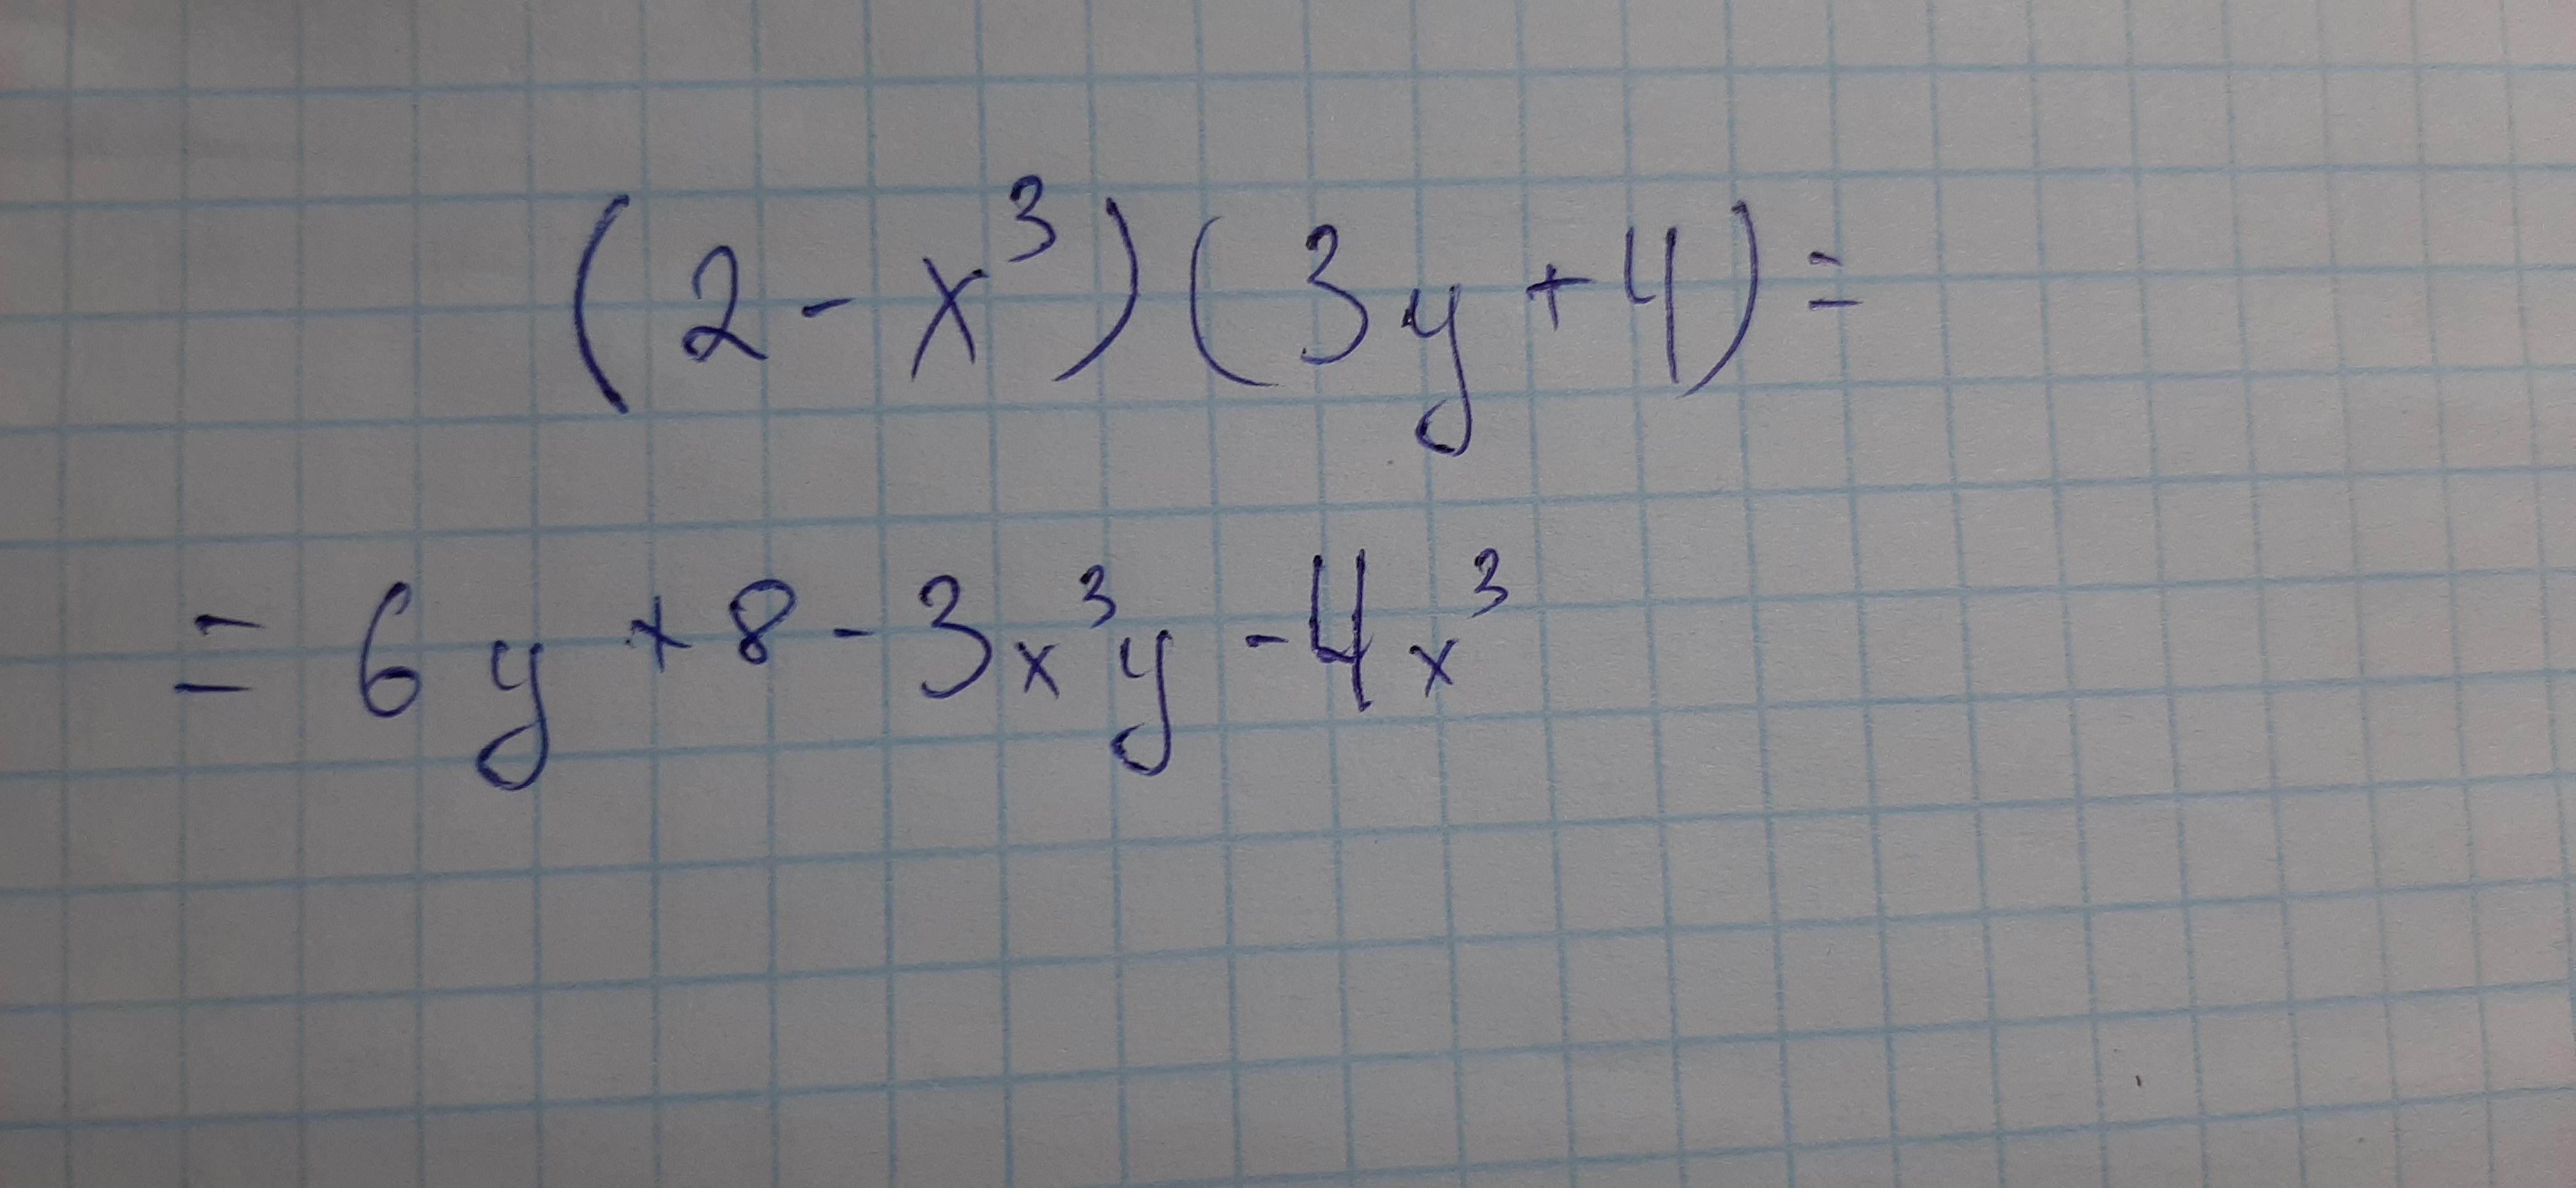 (2 - x³)(3y + 4) =
= 6y + 8 - 3x³y - 4x³